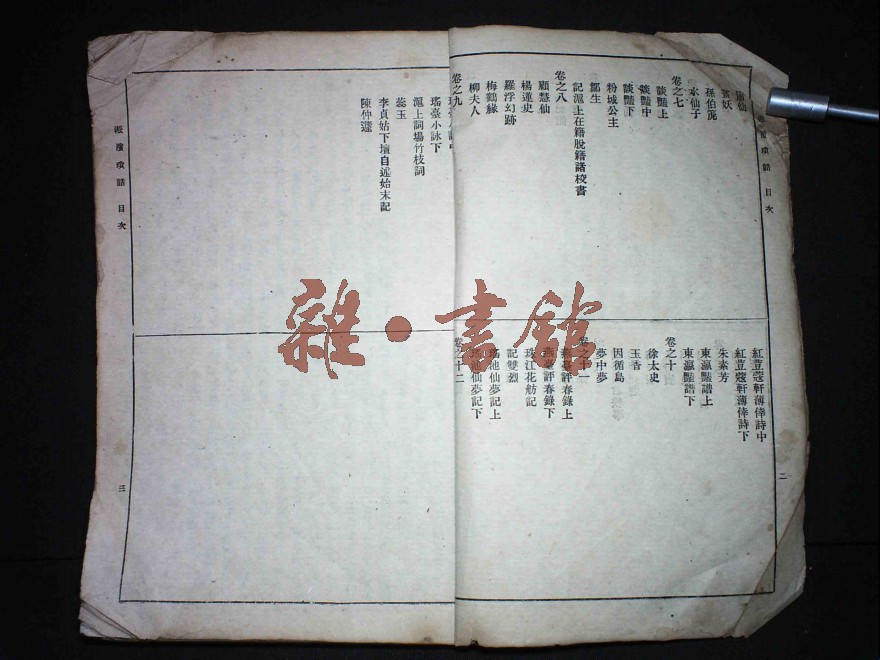 仙
畫妖
孫伯篪
水仙子
卷之七
談豔上
談豔中
談豔下
粉城公主
鄒生
記滬上在籍脫籍諸校書
卷之八
顧慧仙
楊蓮史
羅浮幻跡
梅鶴緣
柳夫人
卷之九
瑤臺小詠下
滬上詞場竹枝詞
蕊玉
李貞姑下壇自述始末記
陳仲蘧
紅荳蔻軒薄倖詩中
紅荳蔻軒薄倖詩下
朱素芳
東瀛豔譜上
東瀛豔譜下
卷之十
徐太史
玉香
因循島
夢中夢
卷之十一
燕臺評春錄上
燕臺評春錄下
珠江花舫記
記雙烈
瑤池仙夢記上
瑤池仙夢記下
卷之十二
淞濱瑣話 目次
二
淞濱瑣話 目次
三
雜·書館